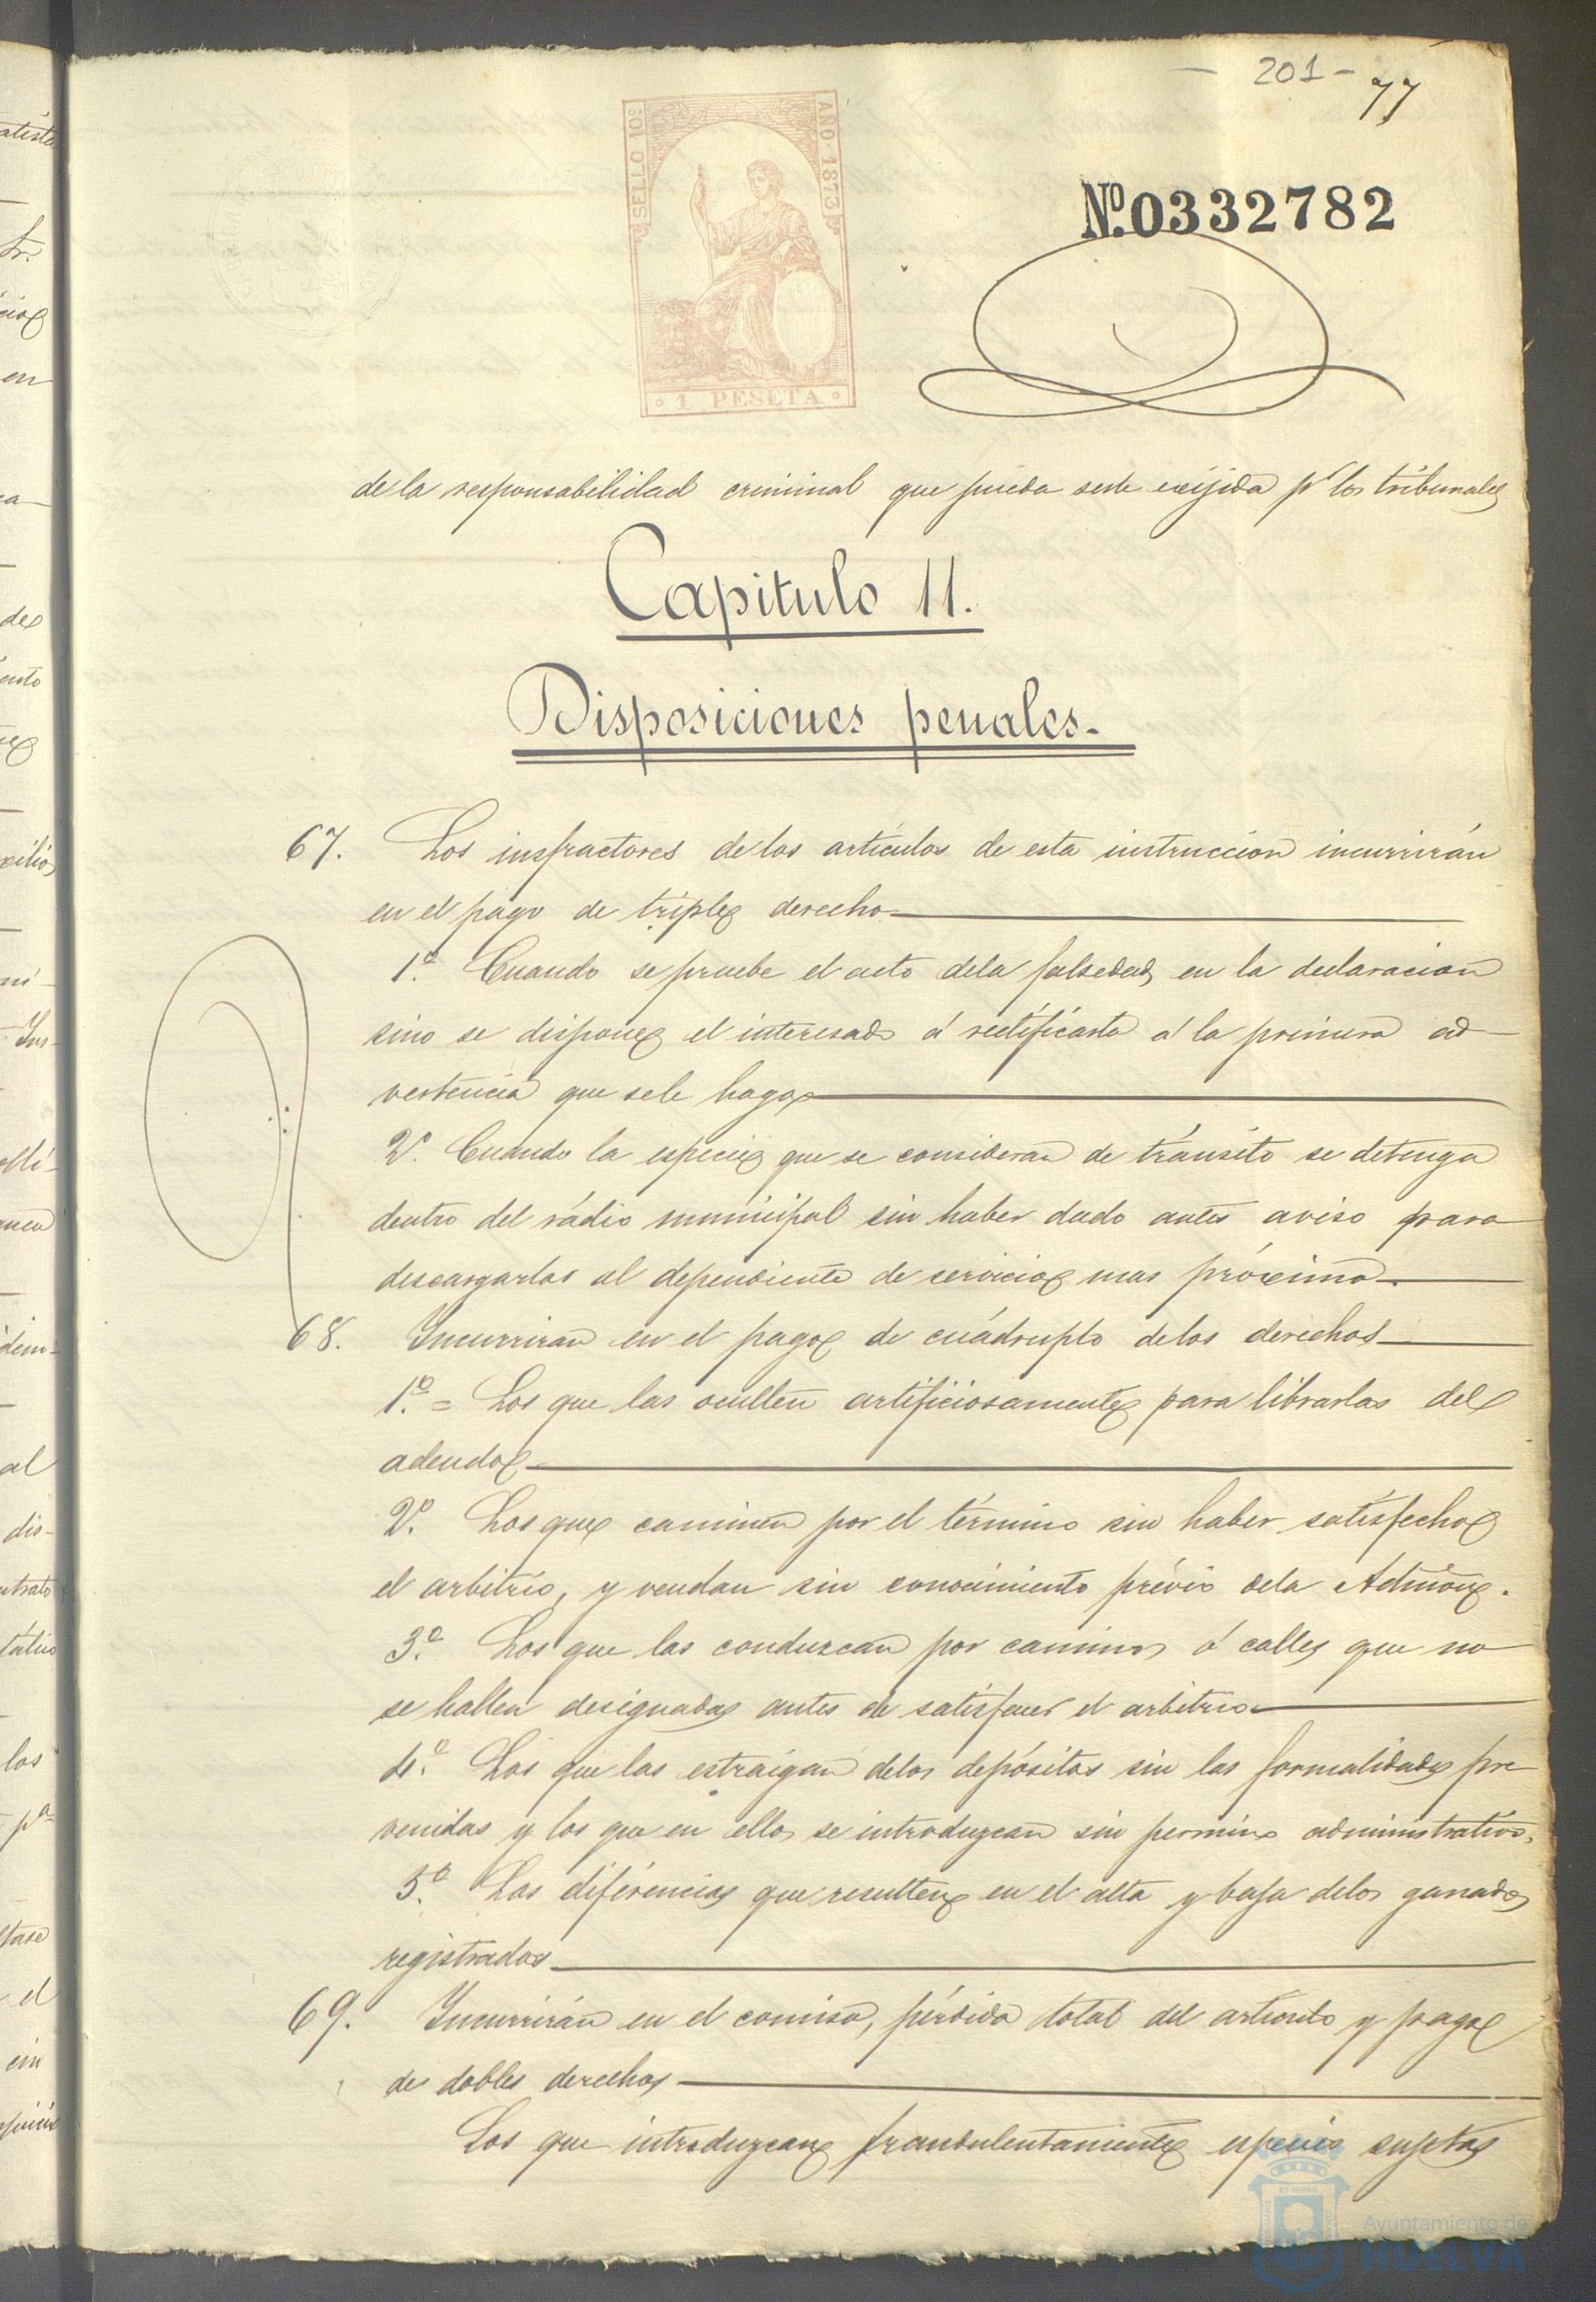 - 201 -
77
SELLO 10º
AÑO·1873
1 PESETA
Nº.0332782
de la responsabilidad criminal que pueda serle exijida pr los tribunales
Capitulo 11.
Disposiciones penales.
67. Los insfractores de los artículos de esta instruccion incurrirán
en el pago de triples derechos
1.º Cuando se pruebe el acto dela falsedad en la declaracion
sino se dispone el interesado á rectificarla á la primera ad-
vertencia que sele haga
2.º Cuando la especie que se consideran de tránsito se detenga
dentro del rádio municipal sin haber dado antes aviso para
descargarlas al dependiente de servicio mas próximo.
68. Incurriran en el pago de cuádruplo delos derechos
1.º = Los que las oculten artificiosamente para librarlas del
adeudo
2.º Los que caminen por el término sin haber satisfecho
el arbitrio, y vendan sin conocimiento prévio dela Admon.
3.º Los que las conduzcan por caminos ó calles que no
se hallen designadas antes de satisfacer el arbitrio
4.º Los que las estraigan delos depósitos sin las formalidades pre-
venidas y los que en ellos se introduzcan sin permiso administrativo.
5.º Las diferencias que resulten en el alta y baja delos ganados
registrados
69. Incurrirán en el comiso, pérdida total del artículo y pago
de dobles derechos
Los que introduzcan fraudulentamente especies sujetas
Ayuntamiento de
HUELVA